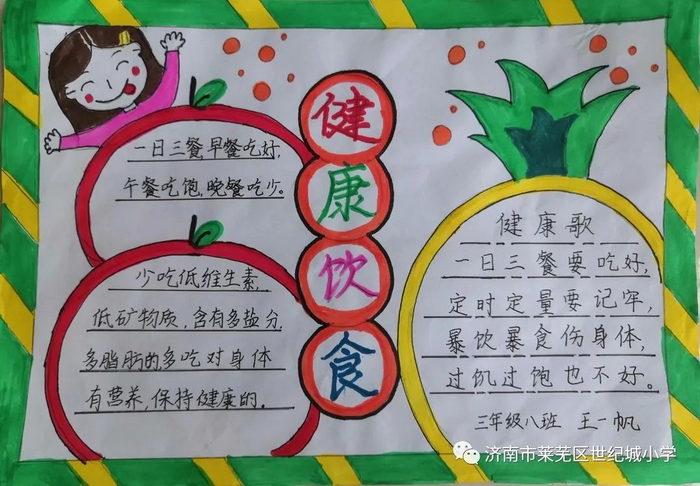 健
康
饮
食
一日三餐,早餐吃好,
午餐吃饱,晚餐吃少。
少吃低维生素,
低矿物质,含有多盐分
多脂肪的,多吃对身体
有营养,保持健康的.
健康歌
一日三餐要吃好,
定时定量要记牢,
暴饮暴食伤身体,
过饥过饱也不好。
三年级八班 王一帆
济南市莱芜区世纪城小学